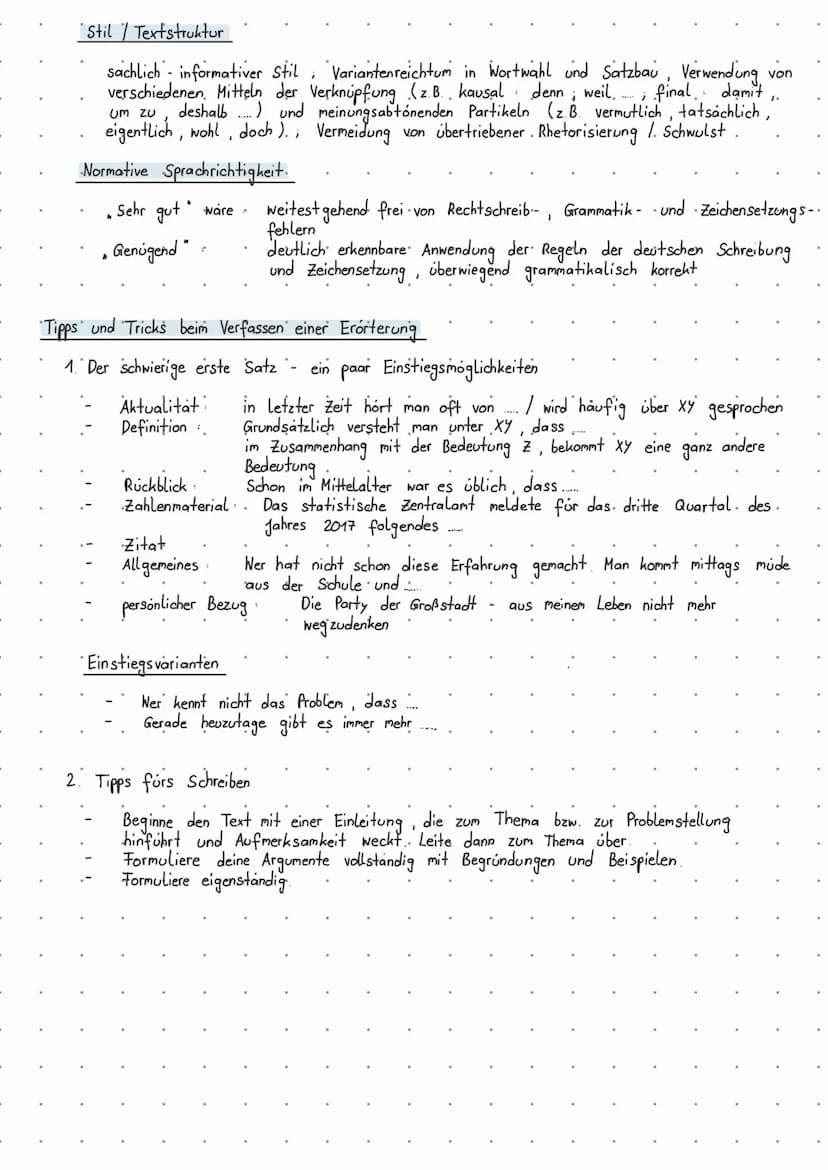 Stil / Textstruktur
sachlich - informativer Stil ; Variantenreichtum in Wortwahl und Satzbau, Verwendung von
verschiedenen Mitteln der Verknüpfung (z.B. kausal : denn ; weil .... ; final : damit ,
um zu , deshalb ....) und meinungsabtönenden Partikeln (z.B. vermutlich , tatsächlich ,
eigentlich , wohl , doch ) ; Vermeidung von übertriebener Rhetorisierung / Schwulst .
Normative Sprachrichtigkeit
„Sehr gut" wäre : weitestgehend frei von Rechtschreib-, Grammatik- und Zeichensetzungs-
fehlern
„Genügend" : deutlich erkennbare Anwendung der Regeln der deutschen Schreibung
und Zeichensetzung , überwiegend grammatikalisch korrekt
Tipps und Tricks beim Verfassen einer Erörterung
1. Der schwierige erste Satz - ein paar Einstiegsmöglichkeiten
- Aktualität : in letzter Zeit hört man oft von .... / wird häufig über XY gesprochen
- Definition : Grundsätzlich versteht man unter XY , dass ....
im Zusammenhang mit der Bedeutung Z , bekommt XY eine ganz andere
Bedeutung .
- Rückblick : Schon im Mittelalter war es üblich, dass .....
- Zahlenmaterial : Das statistische Zentralamt meldete für das dritte Quartal des
Jahres 2017 folgendes ....
- Zitat
- Allgemeines : Wer hat nicht schon diese Erfahrung gemacht. Man kommt mittags müde
aus der Schule und ....
- persönlicher Bezug : Die Party der Großstadt - aus meinem Leben nicht mehr
wegzudenken
Einstiegsvarianten
- Wer kennt nicht das Problem , dass ....
- Gerade heuzutage gibt es immer mehr ....
2. Tipps fürs Schreiben
- Beginne den Text mit einer Einleitung , die zum Thema bzw. zur Problemstellung
hinführt und Aufmerksamkeit weckt. Leite dann zum Thema über.
- Formuliere deine Argumente vollständig mit Begründungen und Beispielen.
- Formuliere eigenständig.